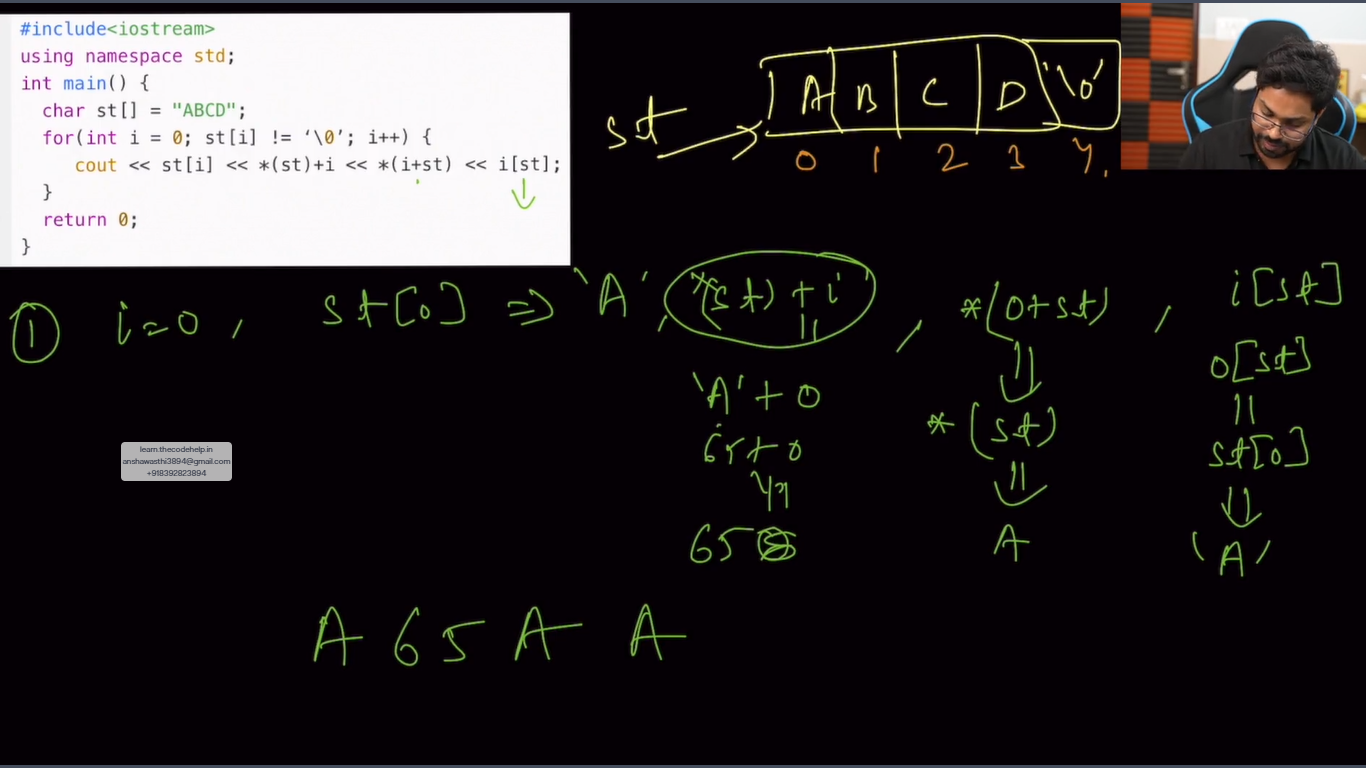 #include<iostream>
using namespace std;
int main() {
char st[] = "ABCD";
for(int i = 0; st[i] != ‘\0’; i++) {
cout << st[i] << *(st)+i << *(i+st) << i[st];
}
return 0;
}
st
A B C D '\0'
0 1 2 3 4
① i=0, st[0] => 'A', *(st) + i, *(0+st), i[st]
'A' + 0
65+0
65
*(st)
A
0[st]
st[0]
'A'
learn.thecodehelp.in
anshawasthi3894@gmail.com
+918392823894
A 65 A A